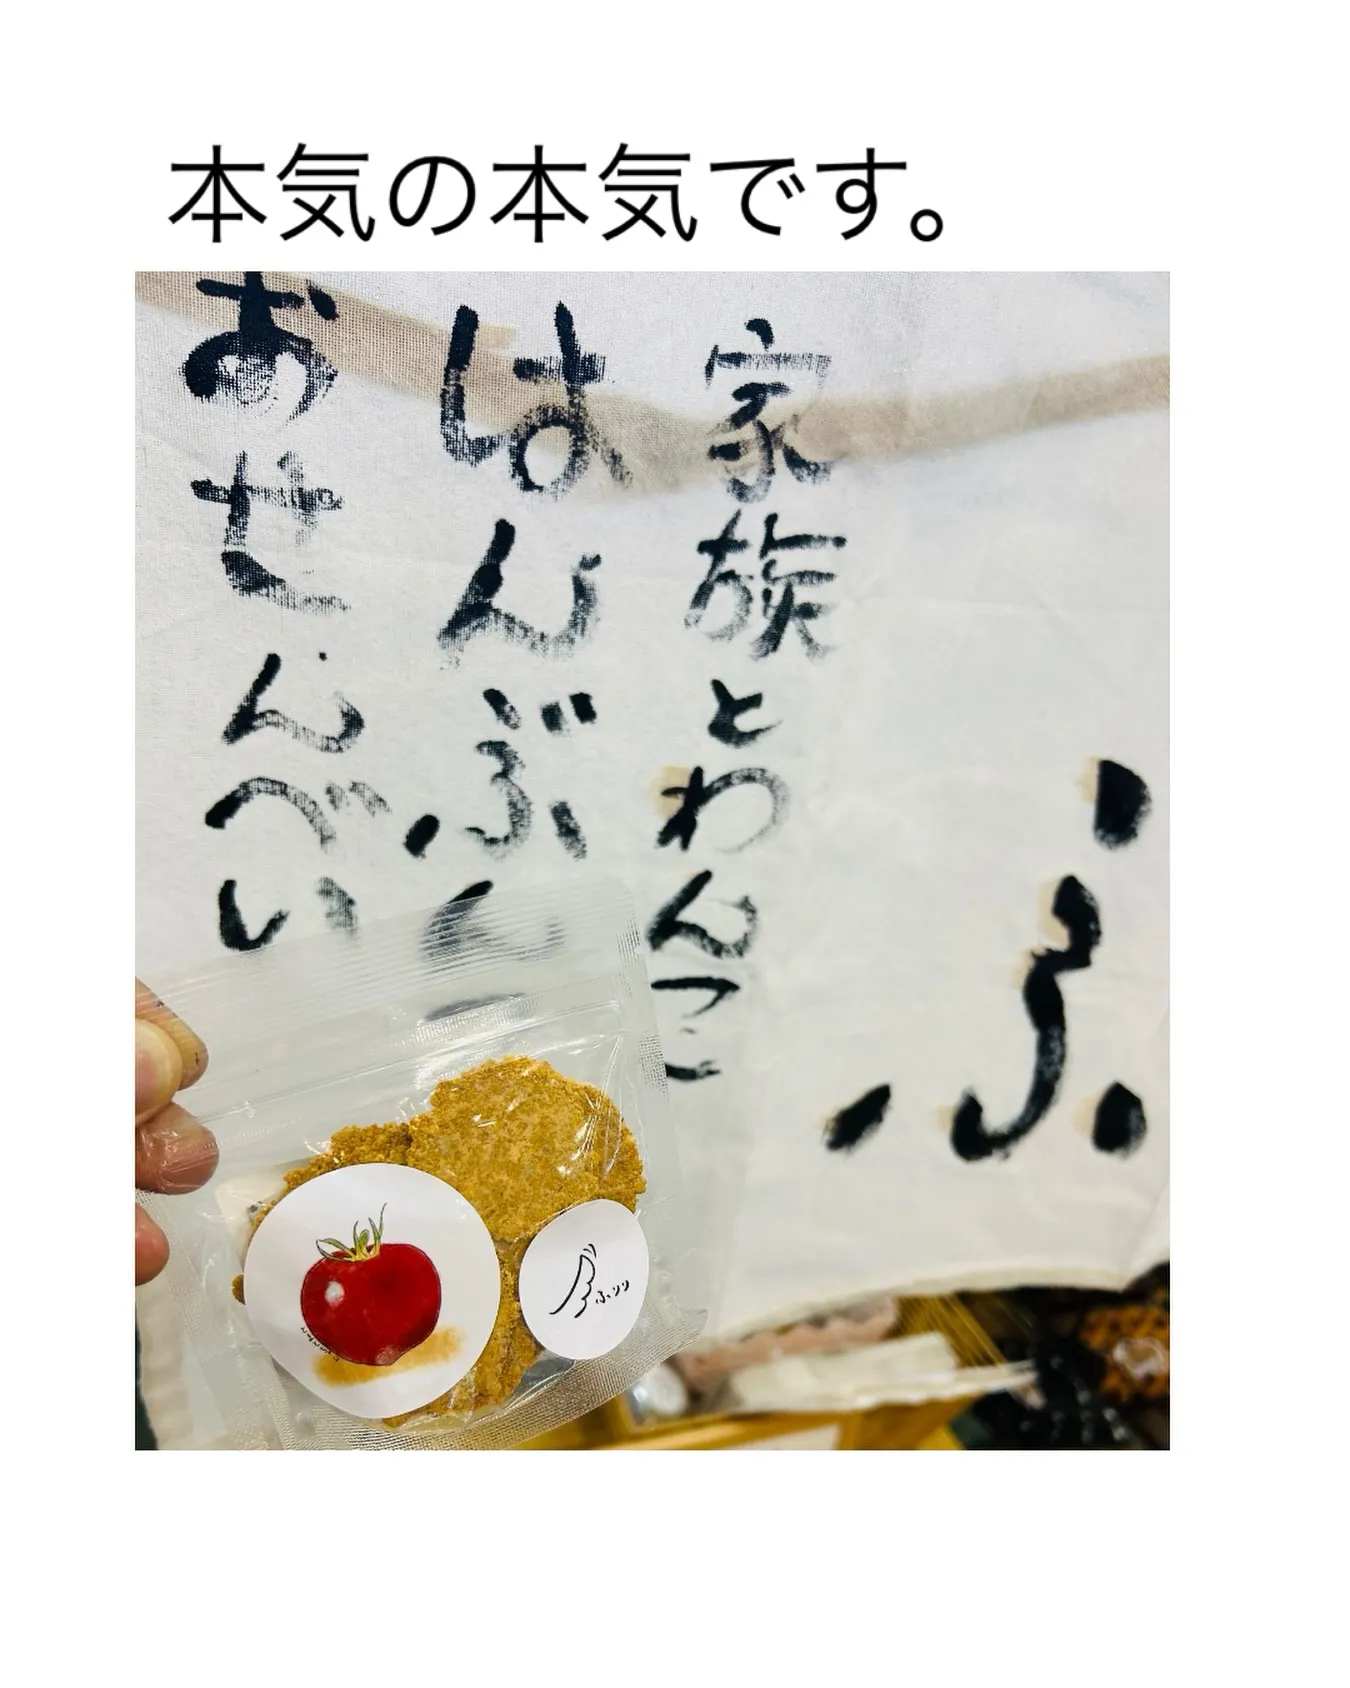 本気の本気です。
ふ
家族とわんこ
はんぶんこ
おせんべい
ふりり